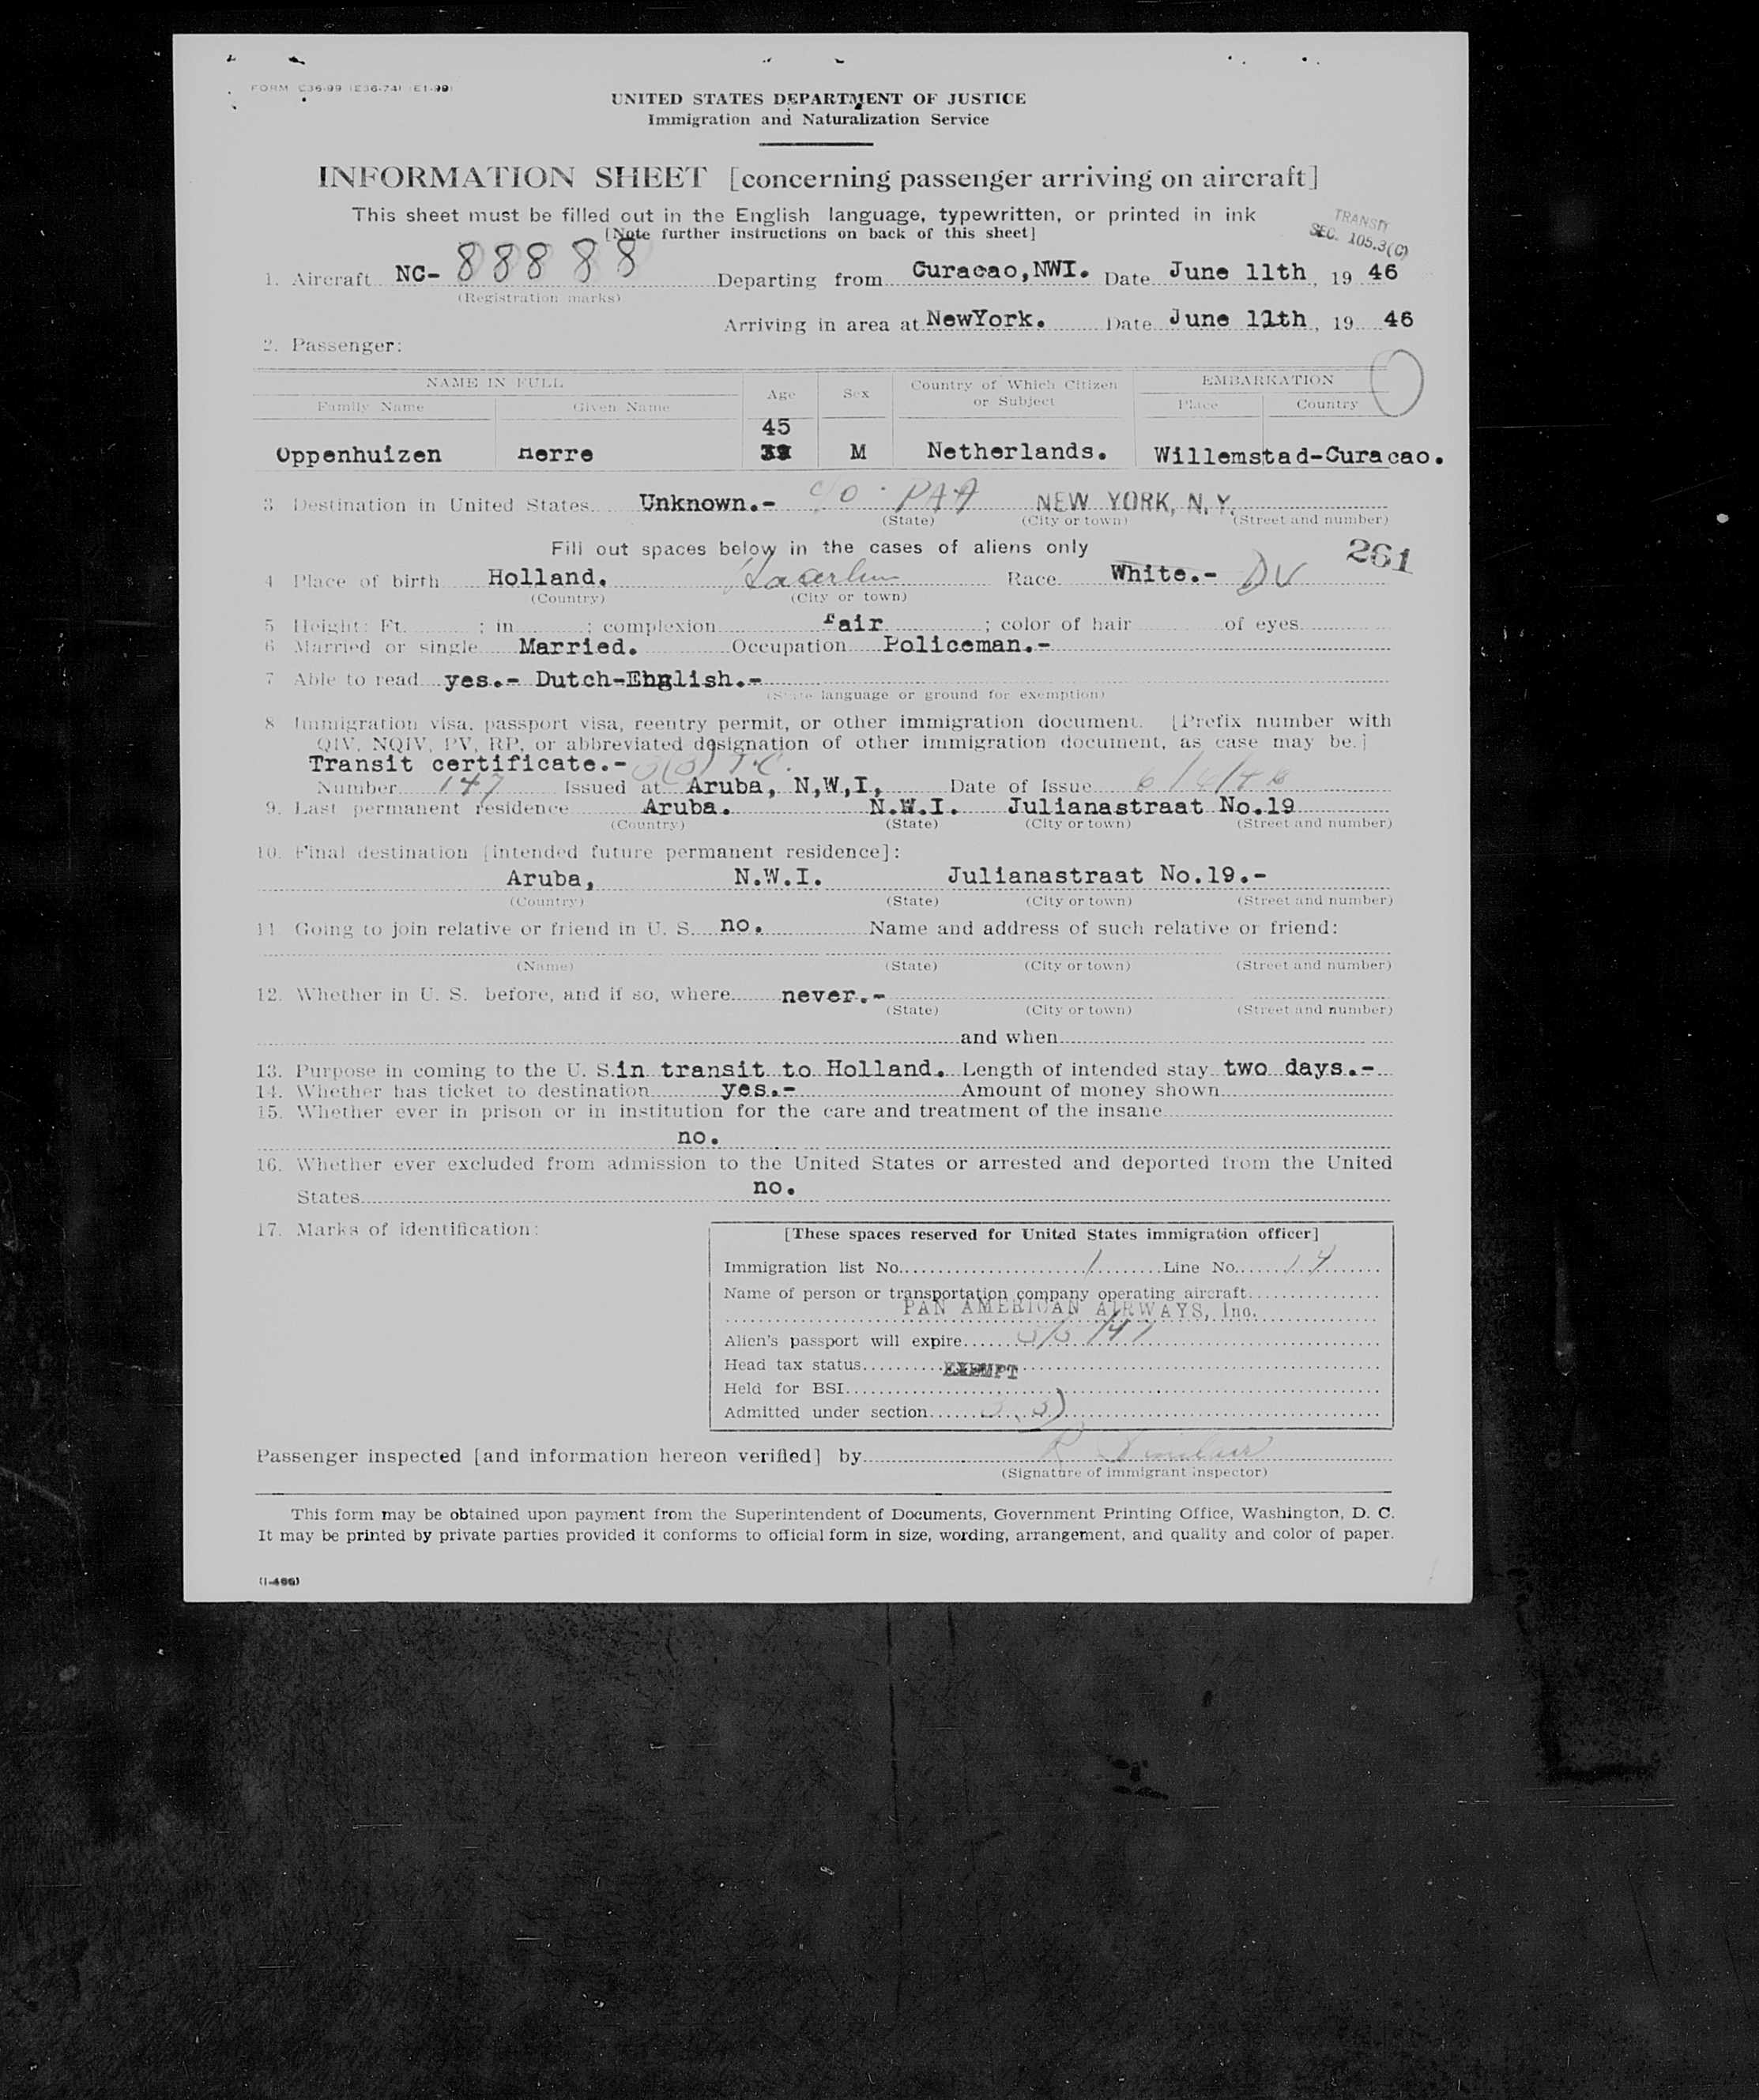 FORM C36-99 (E36-74) (E1-99)
UNITED STATES DEPARTMENT OF JUSTICE
Immigration and Naturalization Service
INFORMATION SHEET [concerning passenger arriving on aircraft]
This sheet must be filled out in the English language, typewritten, or printed in ink
[Note further instructions on back of this sheet]
TRANSIT
SEC. 105.3(C)
1. Aircraft NC- 88888 Departing from Curacao,NWI. Date June 11th, 19 46
(Registration marks)
Arriving in area at NewYork. Date June 11th, 19 46
2. Passenger:
NAME IN FULL Age Sex Country of Which Citizen or Subject EMBARKATION
Family Name Given Name Place Country
45
Oppenhuizen Herre M Netherlands. Willemstad-Curacao.
3 Destination in United States Unknown.- c/o PAA NEW YORK, N.Y.
(State) (City or town) (Street and number)
Fill out spaces below in the cases of aliens only
261
4 Place of birth Holland. Race White.- DU
(Country) (City or town)
5 Height: Ft. ; in ; complexion fair ; color of hair of eyes
6 Married or single Married. Occupation Policeman.-
7 Able to read yes.- Dutch-English.-
(State language or ground for exemption)
8 Immigration visa, passport visa, reentry permit, or other immigration document. [Prefix number with
QIV, NQIV, PV, RP, or abbreviated designation of other immigration document, as case may be.]
Transit certificate.- 3(3) T.C.
Number 147 Issued at Aruba, N,W,I, Date of Issue 6/6/46
9. Last permanent residence Aruba. N.W.I. Julianastraat No.19
(Country) (State) (City or town) (Street and number)
10. Final destination [intended future permanent residence]:
Aruba, N.W.I. Julianastraat No.19.-
(Country) (State) (City or town) (Street and number)
11 Going to join relative or friend in U. S. no. Name and address of such relative or friend:
(Name) (State) (City or town) (Street and number)
12. Whether in U. S. before, and if so, where never.-
(State) (City or town) (Street and number)
and when
13. Purpose in coming to the U. S. in transit to Holland. Length of intended stay two days.-
14. Whether has ticket to destination yes.- Amount of money shown
15. Whether ever in prison or in institution for the care and treatment of the insane
no.
16. Whether ever excluded from admission to the United States or arrested and deported from the United
States no.
17. Marks of identification:
[These spaces reserved for United States immigration officer]
Immigration list No. 1 Line No. 14
Name of person or transportation company operating aircraft
PAN AMERICAN AIRWAYS, Inc.
Alien's passport will expire
Head tax status EXEMPT
Held for BSI
Admitted under section 3(3)
Passenger inspected [and information hereon verified] by
(Signature of immigrant inspector)
This form may be obtained upon payment from the Superintendent of Documents, Government Printing Office, Washington, D. C.
It may be printed by private parties provided it conforms to official form in size, wording, arrangement, and quality and color of paper.
(I-466)